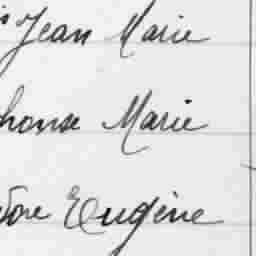 Jean Marie
phonse Marie
dore Eugène